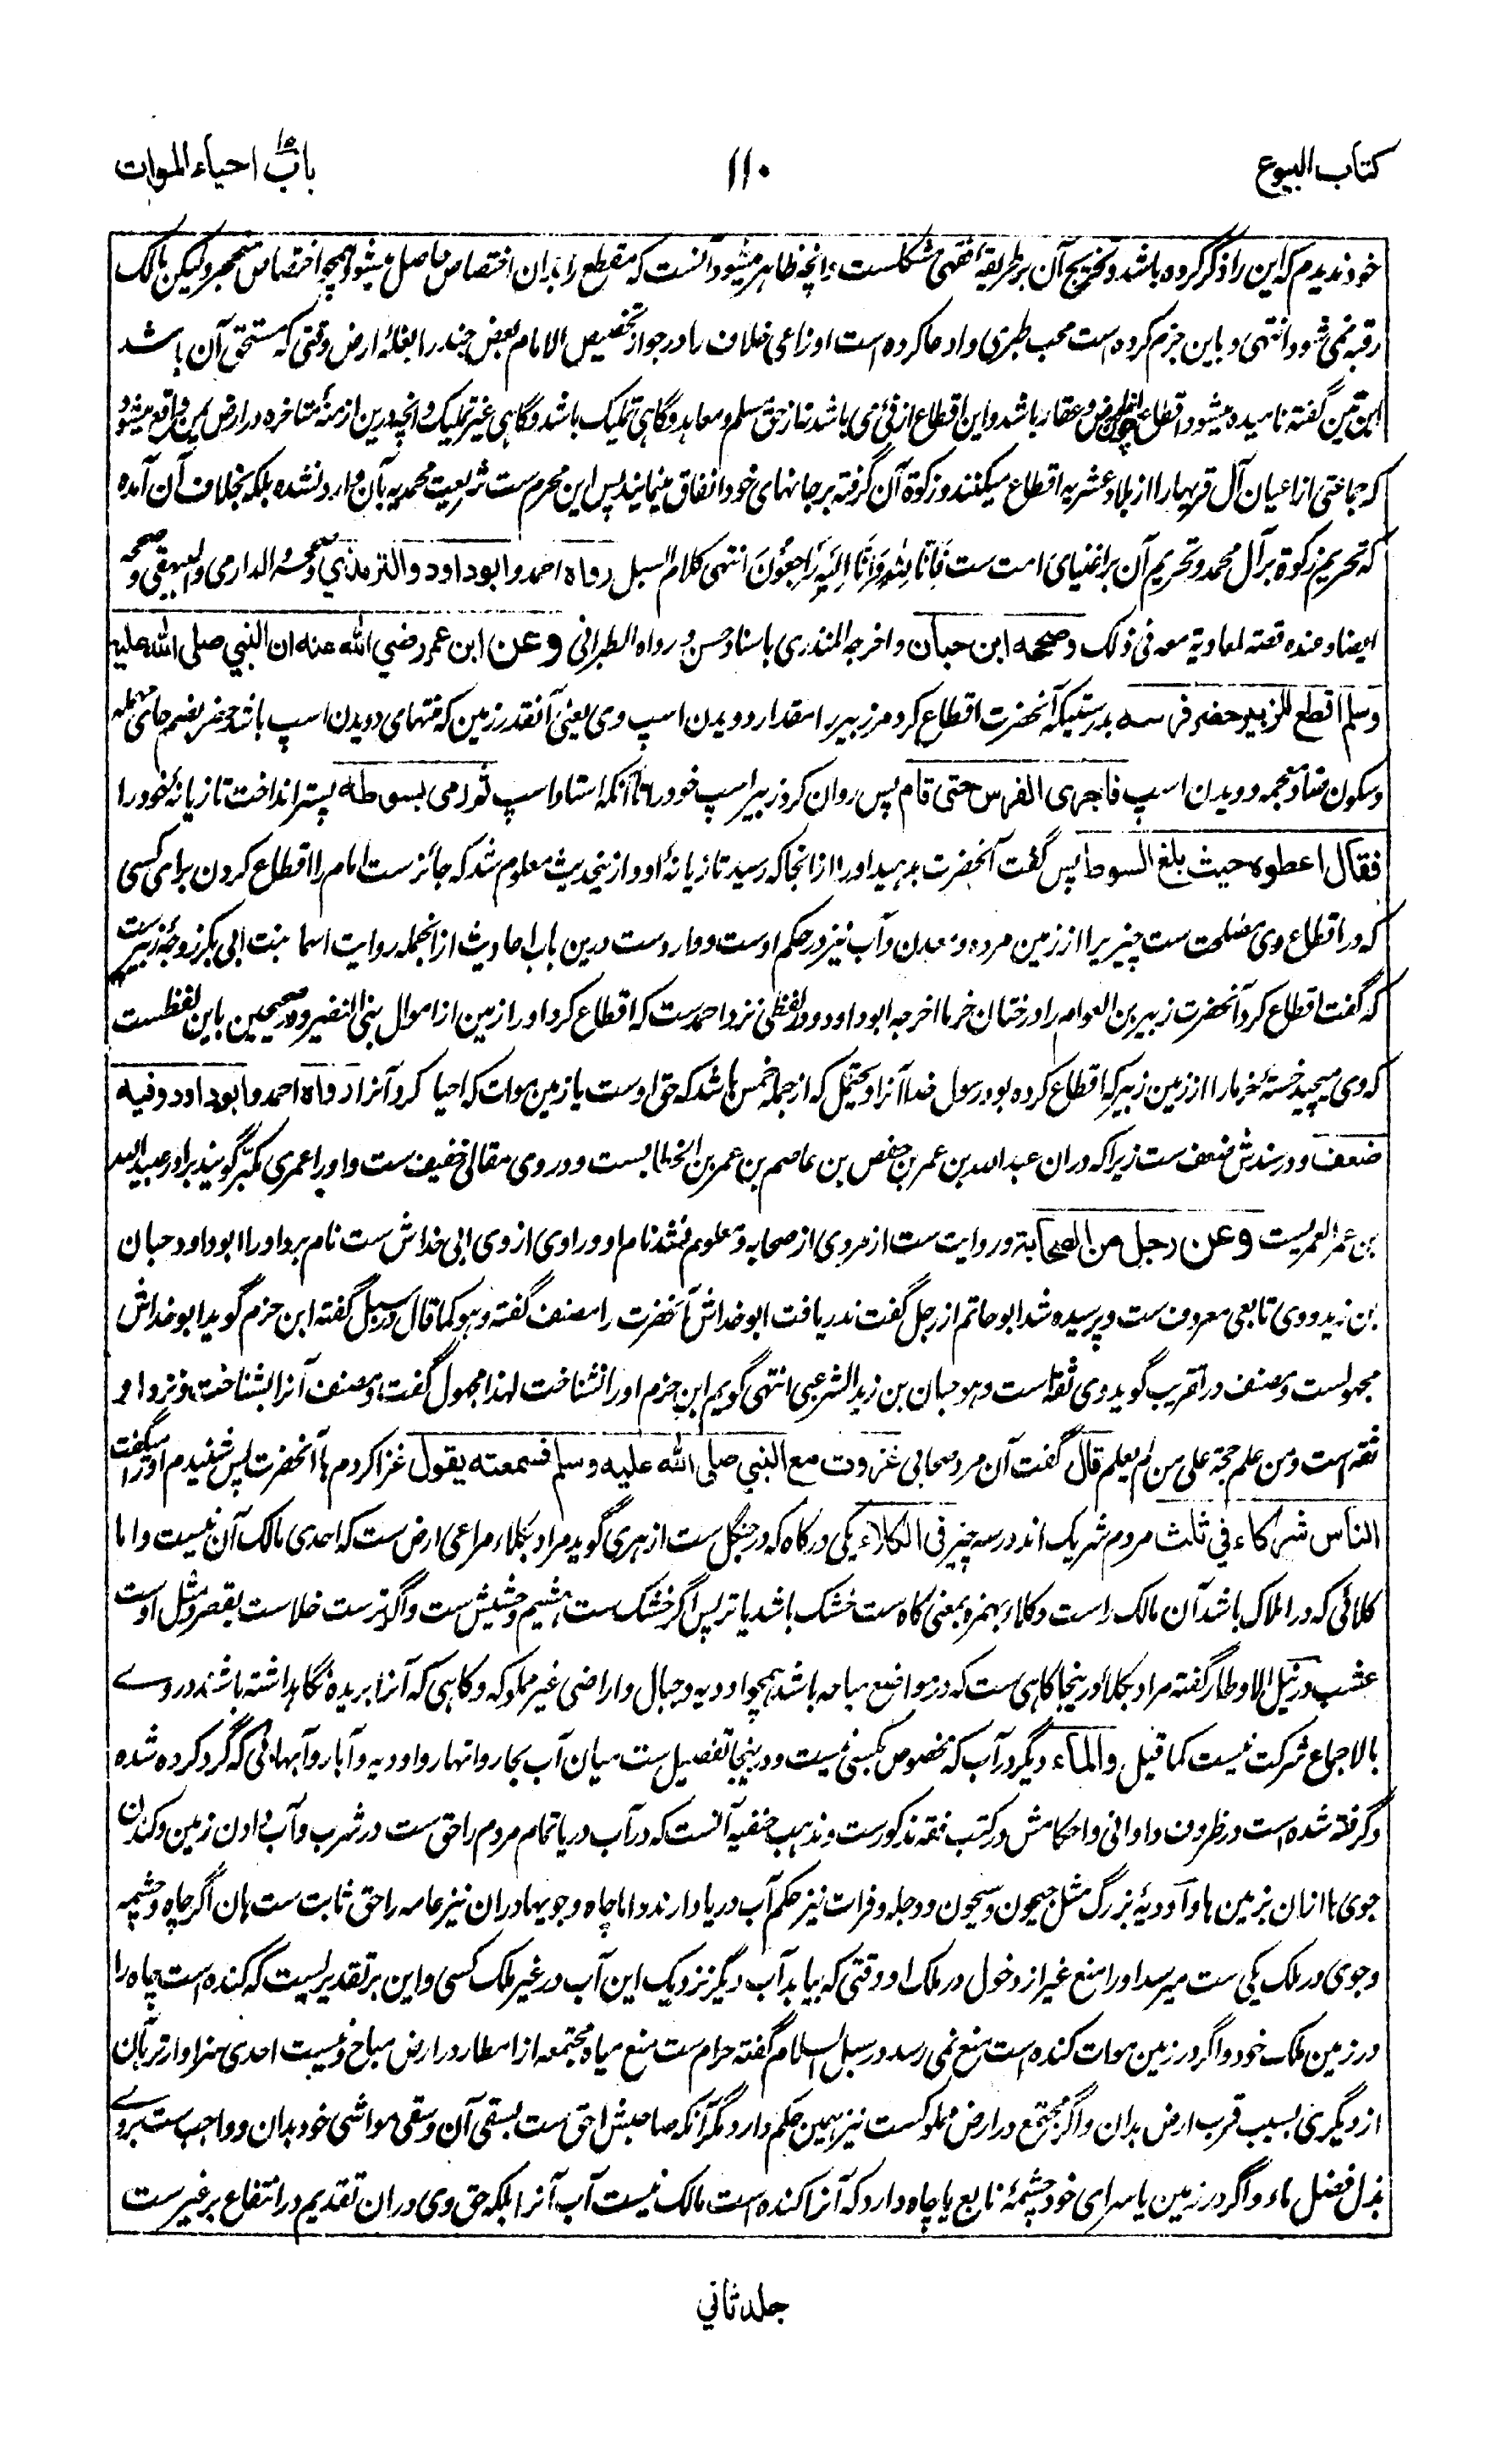 کتاب البیوع
۱۱۰
باب ۱۵ احیاء الموات
خود ندیدم که این را ذکر کرده باشد و تخریج آن بر طریقهٔ فقهی مشکلست و انچه ظاهر میشود آنست که مقطع را بدان اختصاص حاصل میشود همچو اختصاص متحجر ولیکن مالک
رقبه نمی شود انتهی و باین جزم کرده است محب طبری و ادعا کرده است اوزاعی خلاف را در جواز تخصیص الامام بعض جند را بغلهٔ ارض وقتی که مستحق آن باشد
ابن تین گفته نامیده میشود اقطاع چون از ارض و عقار باشد و این اقطاع از فئ می باشد نه از حق مسلم و معاهد و گاهی تملیک باشد و گاهی غیر تملیک و انچه درین ازمنهٔ متاخره در ارض یمن واقع میشود
که جماعتی از اعیان آل قریهها را از بلاد عشریه اقطاع میکنند و زکوة آن گرفته بر جانهای خود انفاق مینمایند پس این محرم ست شریعت محمدیه بآن وارد نشده بلکه بخلاف آن آمده
که تحریم زکوة بر آل محمد و تحریم آن بر اغنیای امت ست فَاِنَّا لِلّٰهِ وَاِنَّا اِلَیْهِ رَاجِعُوْنَ انتهی کلام السبل رواه احمد و ابو داود والترمذي وصححه الدارمی والبیهقی وصححه
ایضا و عنده قصته لمعاویة معه فی ذلک وصححه ابن حبان و اخرجه المنذری باسناد حسن و رواه الطبرانی وعن ابن عمر رضي الله عنه ان النبي صلی الله علیه
وسلم اقطع للزبیر حضر فرسه بدرستیکه آنحضرت اقطاع کرد مر زبیر را مقدار دویدن اسپ وی یعنی آنقدر زمین که منتهای دویدن اسپ باشد حضر بضم حای مهمله
و سکون ضاد معجمه دویدن اسپ فاجری الفرس حتی قام پس روان کرد زبیر اسپ خود را تا آنکه استاد اسپ ثم رمی بسوطه پستر انداخت تازیانهٔ خود را
فقال اعطوه حیث بلغ السوط پس گفت آنحضرت بدهید او را از انجا که رسید تازیانهٔ او و ازینحدیث معلوم شد که جائز ست امام را اقطاع کردن برای کسی
که در اقطاع وی مصلحت ست چیزیرا از زمین مرده و معدن و آب نیز در حکم اوست و وارد ست درین باب احادیث از انجمله روایت اسما بنت ابی بکر زوجهٔ زبیر ست
که گفت اقطاع کرد آنحضرت زبیر بن العوام را درختان خرما اخرجه ابو داود و در لفظی نزد احمد ست که اقطاع کرد او را زمین از اموال بنی النضیر و در صحیحین باین لفظ ست
که وی میچید خستهٔ خرما را از زمین زبیر که اقطاع کرده بود رسول خدا آنرا و یحتمل که از جمله خمس باشد که حق اوست یا زمین موات که احیا کرد آنرا رواه احمد و ابو داود وفیه
ضعف و در سندش ضعف ست زیرا که دران عبدالله بن عمر بن حفص بن عاصم بن عمر بن الخطابست و در وی مقالی خفیف ست و او را عمری مکبّر گویند برادر عبیدالله
بن عمر العمریست وعن رجل من الصحابة و روایت ست از مردی از صحابه و معلوم نشد نام او و راوی از وی ابی خداش ست نام برد او را ابو داود حبان
بن زید و وی تابعی معروف ست و پرسیده شد ابو حاتم از رجل گفت ندریافت ابو خداش آنحضرت را مصنف گفته وهو کما قال در سبل گفته ابن حزم گوید ابو خداش
مجهولست و مصنف در تقریب گوید وی ثقه است وهو حبان بن زید الشرعبی انتهی گویم ابن حزم او را نشناخت لهذا مجهول گفت و مصنف آنرا بشناخت و نزد او
ثقه است ومن علم حجة علی من لم یعلم قال گفت آن مرد صحابی غزوت مع النبي صلی الله علیه وسلم فسمعته یقول غزا کردم با آنحضرت پس شنیدم او را میگفت
الناس شرکاء في ثلث مردم شریک اند در سه چیز فی الکلاء یکی در کاه که در جنگل ست ازهری گوید مراد بکلاء مراعی ارض ست که احدی مالک آن نیست و اما
کلائی که در املاک باشد آن مالک راست و کلاء بهمزه بمعنی کاه ست خشک باشد یا تر پس اگر خشک ست هشیم و حشیش ست و اگر تر ست خلاست بقصر و مثل اوست
عشب در نیل الاوطار گفته مراد بکلأ درینجا کاهی ست که در مواضع مباحه باشد همچو اودیه و جبال و اراضی غیر مملوکه و کاهی که آنرا بریده نگاهداشته باشند در وے
بالاجماع شرکت نیست کما قیل والماء دیگر در آب که مخصوص بکسی نیست و درینجا تفصیل ست میان آب بحار و انهار و اودیه و آبار و آبهائی که گرد کرده شده
و گرفته شده است در ظروف و اوانی و احکامش در کتب فقه مذکورست و مذهب حنفیه آنست که در آب دریا تمام مردم را حق ست در شرب و آب دادن زمین و کندن
جوی ها ازان بزمین ها و آودیهٔ بزرگ مثل جیحون و سیحون و دجله و فرات نیز حکم آب دریا دارند و اما چاه و جویها دران نیز عامه را حق ثابت ست هان اگر چاه و چشمه
و جوی در ملک یکی ست میرسد او را منع غیر از دخول در ملک او وقتی که بیابد آب دیگر نزدیک این آب در غیر ملک کسی و این بر تقدیریست که کنده است چاه را
در زمین ملک خود و اگر در زمین موات کنده است منع نمی رسد در سبل السلام گفته حرام ست منع میاه مجتمعه از امطار در ارض مباح و نیست احدی سزاوارتر بآن
از دیگری بسبب قرب ارض بدان و اگر مجتمع در ارض مملوکست نیز همین حکم دارد مگر آنکه صاحبش احق ست بسقی آن و سقی مواشی خود بدان و واجب ست بروے
بذل فضل ماء و اگر در زمین یا سرای خود چشمهٔ نابع یا چاه دارد که آنرا کنده است مالک نیست آب آنرا بلکه حق وی دران تقدیم در انتفاع بر غیر ست
جلد ثاني